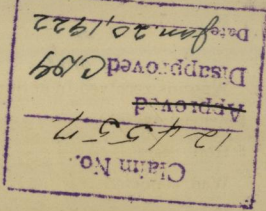 Claim No.
12457
Approved
Disapproved
Date Jan. 20, 1922